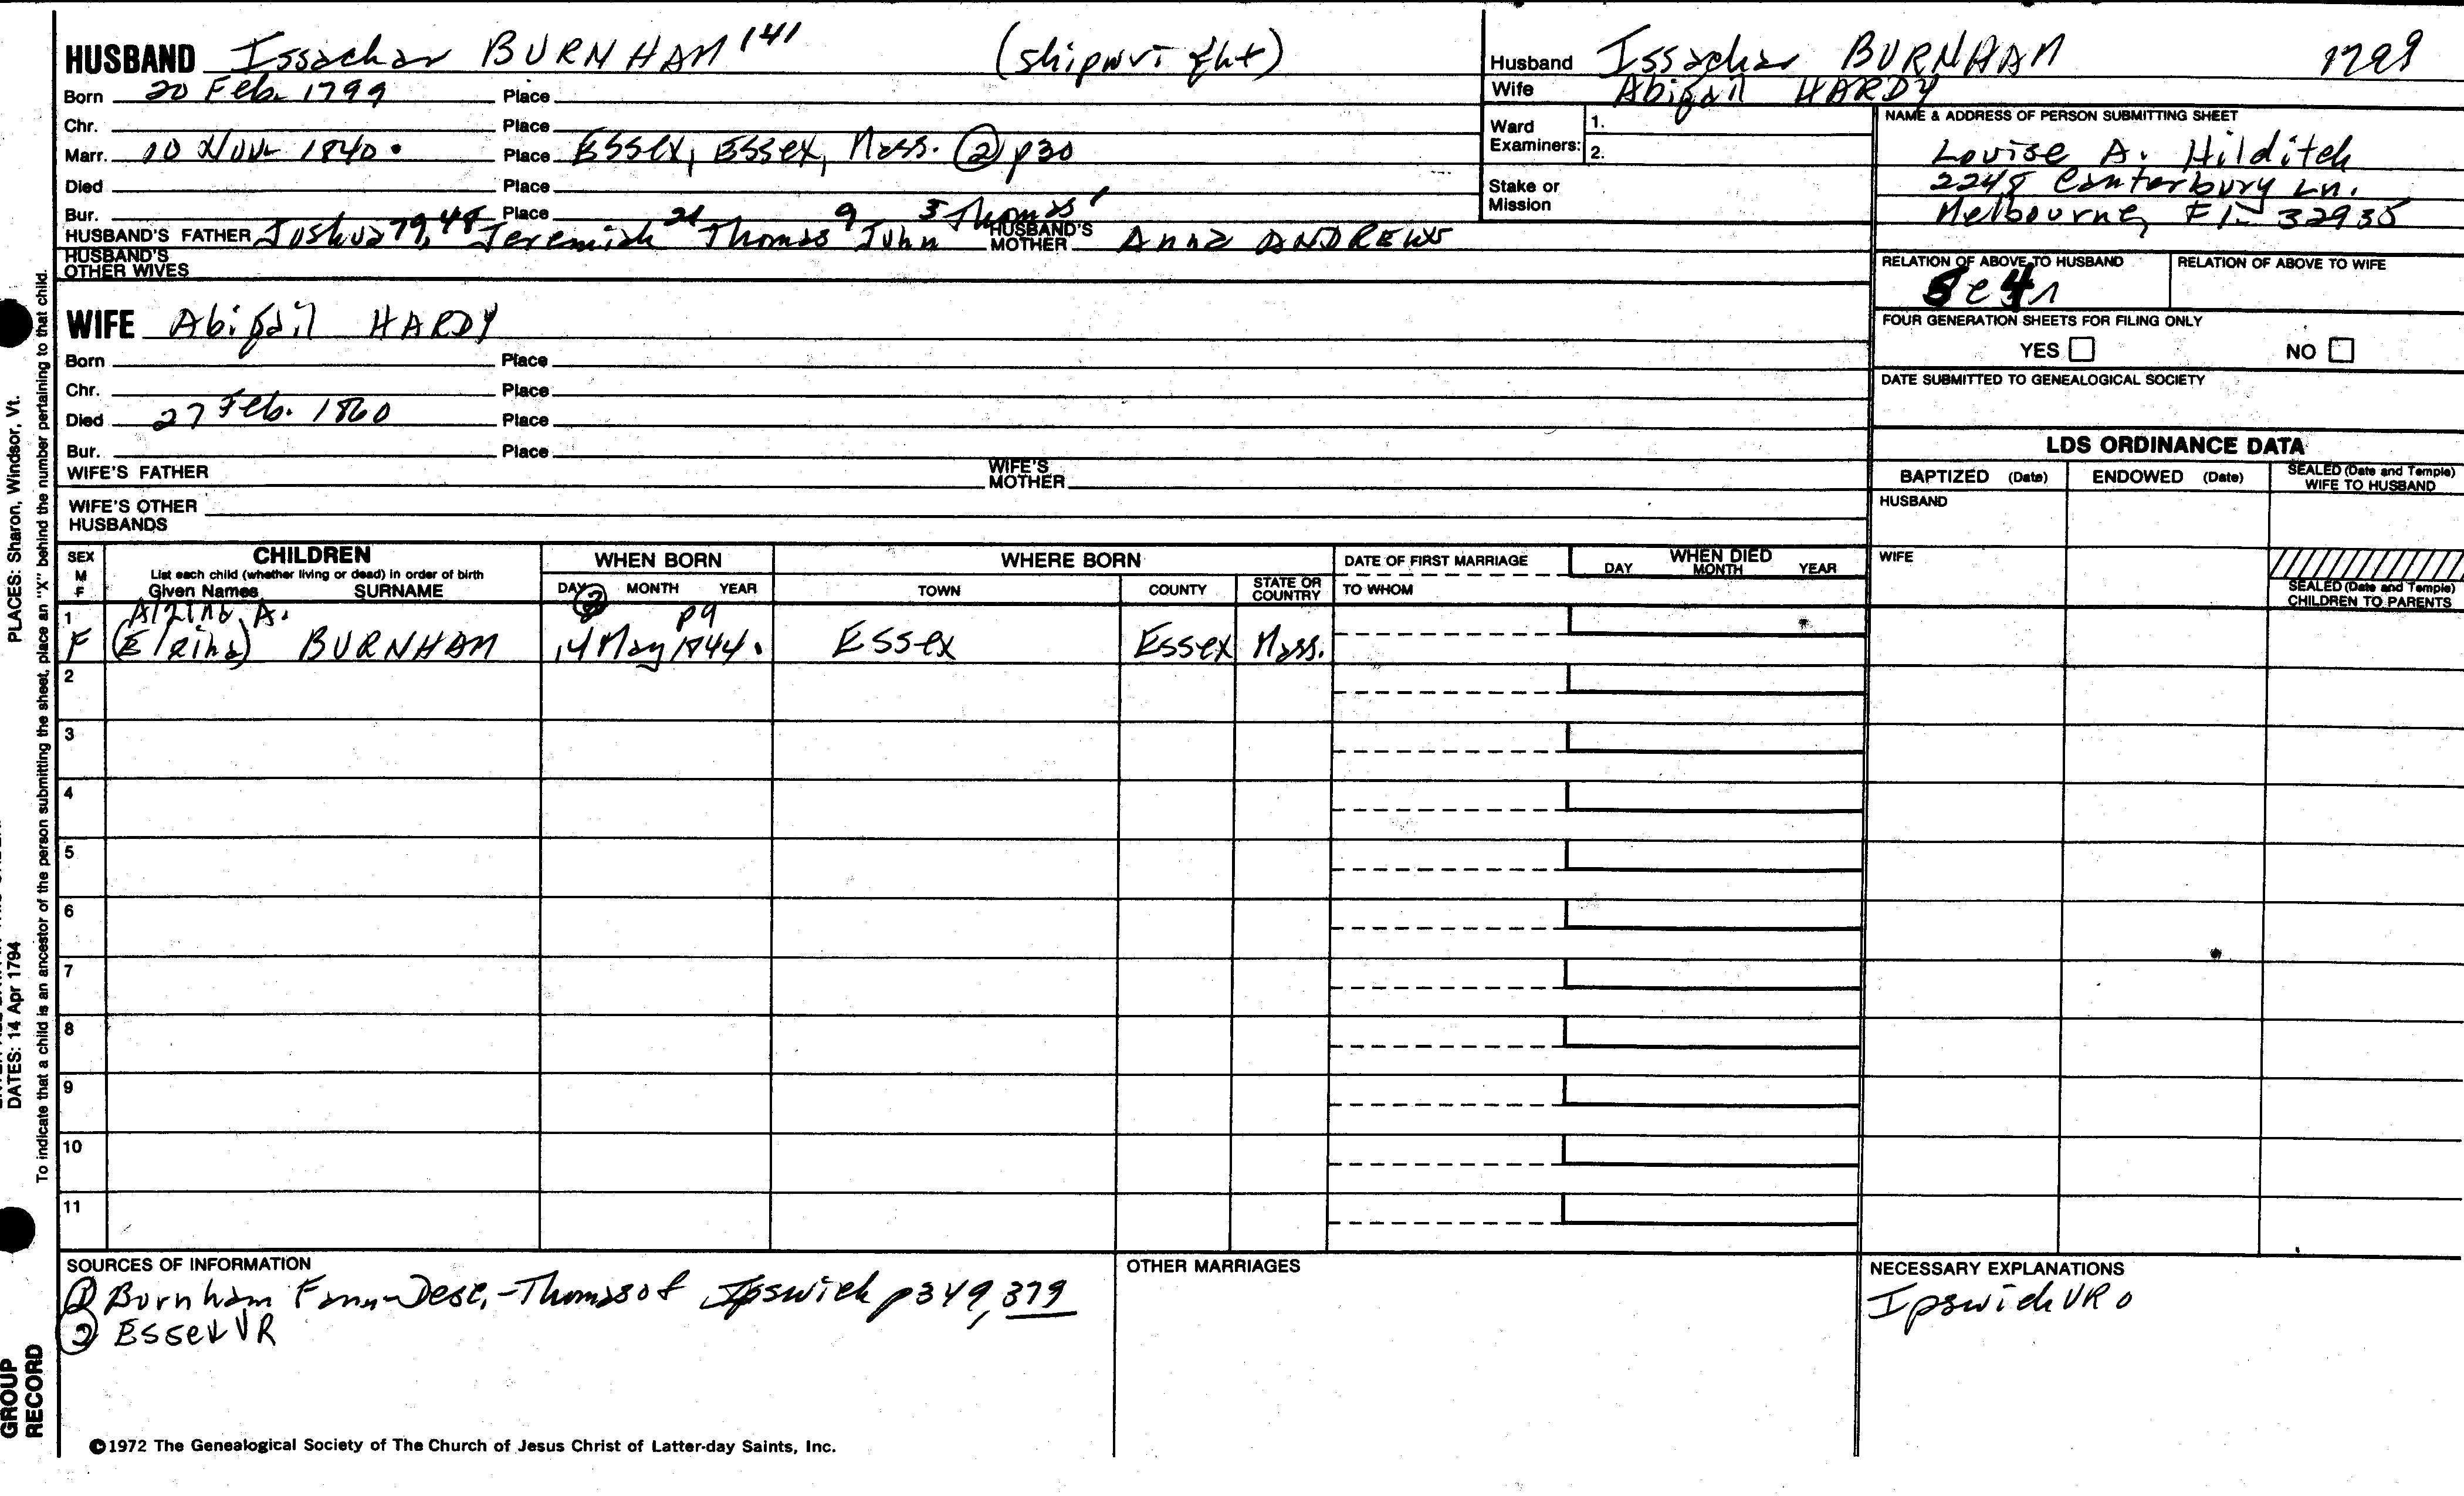 HUSBAND Issachar BURNHAM 141 (shipwright)
Born 20 Feb. 1799 Place
Chr. Place
Marr. 10 Nov. 1840. Place Essex, Essex, Mass. (2) p30
Died Place
Bur. Place
HUSBAND'S FATHER Joshua 79, 48 Jeremiah 21 Thomas 9 John 3 Thomas 1 HUSBAND'S MOTHER Anna ANDREWS
HUSBAND'S OTHER WIVES
Husband Issachar BURNHAM 1799
Wife Abigail HARDY
Ward Examiners: 1.
2.
Stake or Mission
NAME & ADDRESS OF PERSON SUBMITTING SHEET
Louise A. Hilditch
2248 Canterbury Ln.
Melbourne, Fl- 32935
RELATION OF ABOVE TO HUSBAND RELATION OF ABOVE TO WIFE
FOUR GENERATION SHEETS FOR FILING ONLY
YES NO
DATE SUBMITTED TO GENEALOGICAL SOCIETY
WIFE Abigail HARDY
Born Place
Chr. Place
Died 27 Feb. 1860 Place
Bur. Place
WIFE'S FATHER WIFE'S MOTHER
WIFE'S OTHER HUSBANDS
LDS ORDINANCE DATA
BAPTIZED (Date) ENDOWED (Date) SEALED (Date and Temple) WIFE TO HUSBAND
HUSBAND
WIFE
SEALED (Date and Temple) CHILDREN TO PARENTS
SEX M F
CHILDREN
List each child (whether living or dead) in order of birth
Given Names SURNAME
WHEN BORN
DAY MONTH YEAR
WHERE BORN
TOWN COUNTY STATE OR COUNTRY
DATE OF FIRST MARRIAGE
TO WHOM
WHEN DIED
DAY MONTH YEAR
1 Alzina A. (2) p9
F (Elzina) BURNHAM 14 May 1844. Essex Essex Mass.
2
3
4
5
6
7
8
9
10
11
SOURCES OF INFORMATION
(1) Burnham Fam-Desc.-Thomas of Ipswich p349, 379
(2) Essex VR
OTHER MARRIAGES
NECESSARY EXPLANATIONS
Ipswich VR 0
©1972 The Genealogical Society of The Church of Jesus Christ of Latter-day Saints, Inc.
PLACES: Sharon, Windsor, Vt.
DATES: 14 Apr 1794
To indicate that a child is an ancestor of the person submitting the sheet, place an "X" behind the number pertaining to that child.
GROUP
RECORD